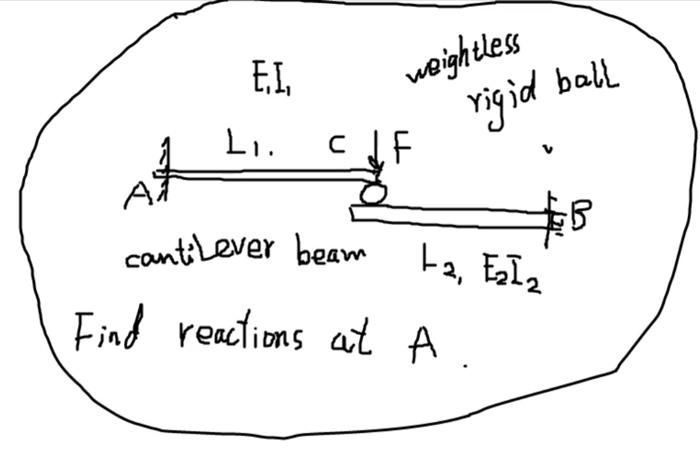 E₁I₁
weightless
rigid ball
L₁.
C
F
A
B
cantilever beam
L₂, E₂I₂
Find reactions at A.